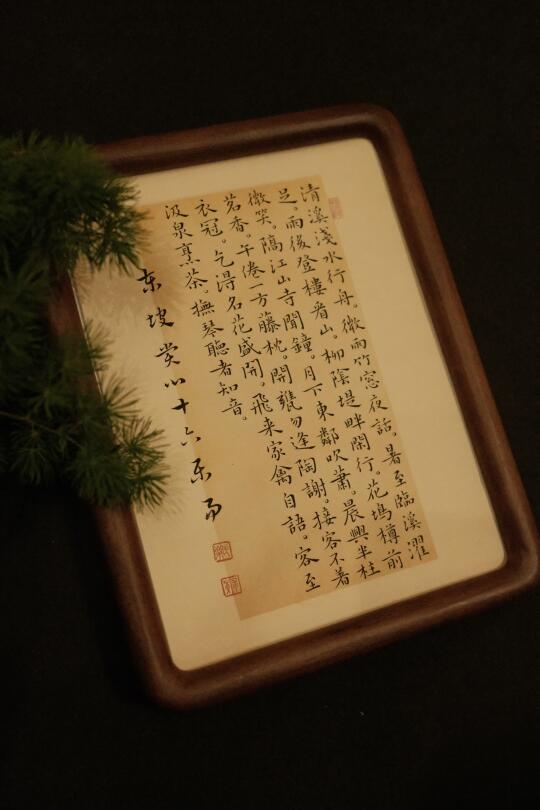 清溪淺水行舟。微雨竹窓夜話。暑至臨溪濯
足。雨後登樓看山。柳陰堤畔閑行。花塢樽前
微笑。隔江山寺聞鐘。月下東鄰吹蕭。晨興半柱
茗香。午倦一方藤枕。開甕勿逢陶謝。接客不著
衣冠。乞得名花盛開。飛来家禽自語。客至
汲泉烹茶。撫琴聽者知音。
东坡赏心十六乐事